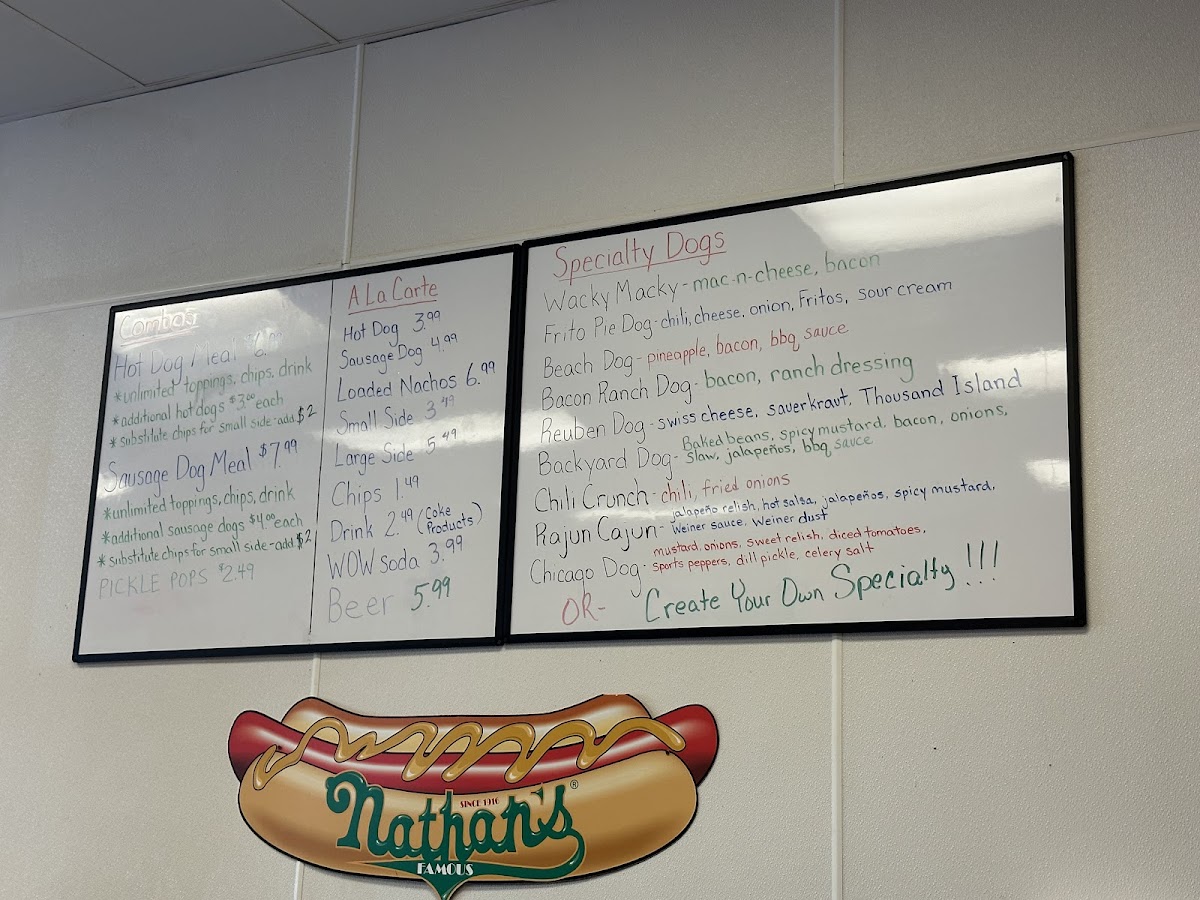 Combos
Hot Dog Meal
*unlimited toppings, chips, drink
*additional hot dogs $3.00 each
*substitute chips for small side-add $2
Sausage Dog Meal $7.99
*unlimited toppings, chips, drink
*additional sausage dogs $4.00 each
*substitute chips for small side-add $2
PICKLE POPS $2.49
A La Carte
Hot Dog 3.99
Sausage Dog 4.99
Loaded Nachos 6.99
Small Side 3.49
Large Side 5.49
Chips 1.49
Drink 2.49 (Coke
Products)
WOW soda 3.99
Beer 5.99
Specialty Dogs
Wacky Macky - mac-n-cheese, bacon
Frito Pie Dog - chili, cheese, onion, Fritos, sour cream
Beach Dog - pineapple, bacon, bbq sauce
Bacon Ranch Dog - bacon, ranch dressing
Reuben Dog - swiss cheese, sauerkraut, Thousand Island
Backyard Dog - Baked beans, spicy mustard, bacon, onions,
slaw, jalapeños, bbq sauce
Chili Crunch - chili, fried onions
Rajun Cajun - jalapeño relish, hot salsa, jalapeños, spicy mustard,
Weiner sauce, Weiner dust
Chicago Dog - mustard, onions, sweet relish, diced tomatoes,
sports peppers, dill pickle, celery salt
OR- Create Your Own Specialty!!!
SINCE 1916
Nathan's®
FAMOUS